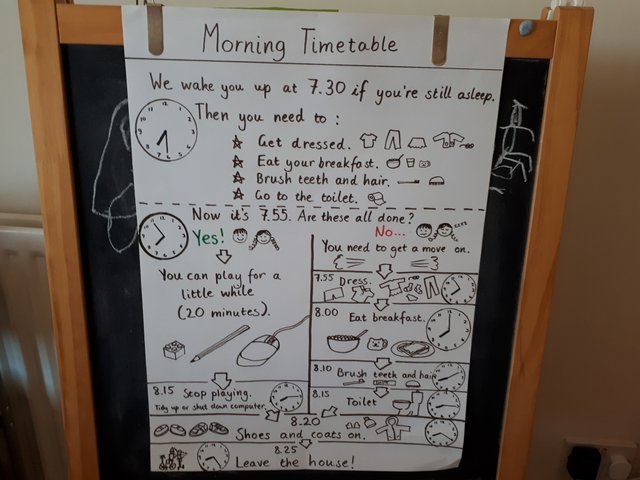 Morning Timetable
We wake you up at 7.30 if you're still asleep.
Then you need to :
Get dressed.
Eat your breakfast.
Brush teeth and hair.
Go to the toilet.
Now it's 7.55. Are these all done?
Yes!
No...
You need to get a move on.
You can play for a
little while
(20 minutes).
7.55 Dress.
8.00 Eat breakfast.
8.10 Brush teeth and hair
8.15 Toilet
8.15 Stop playing.
Tidy up or shut down computer.
8.20
Shoes and coats on.
8.25
Leave the house!